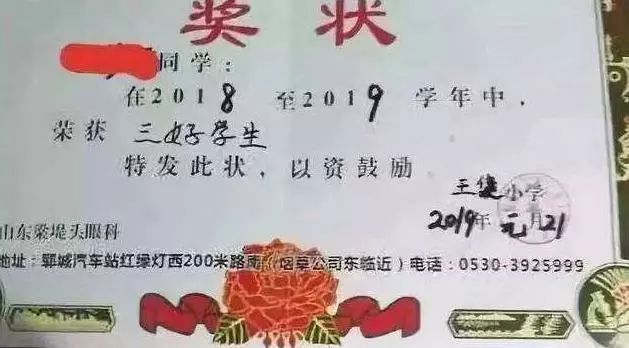 奖状
同学：
在2018至2019学年中，
荣获三好学生
特发此状，以资鼓励
王堤小学
2019年元月21
山东梁堤头眼科
地址：郓城汽车站红绿灯西200米路南（烟草公司东临近）电话：0530-3925999